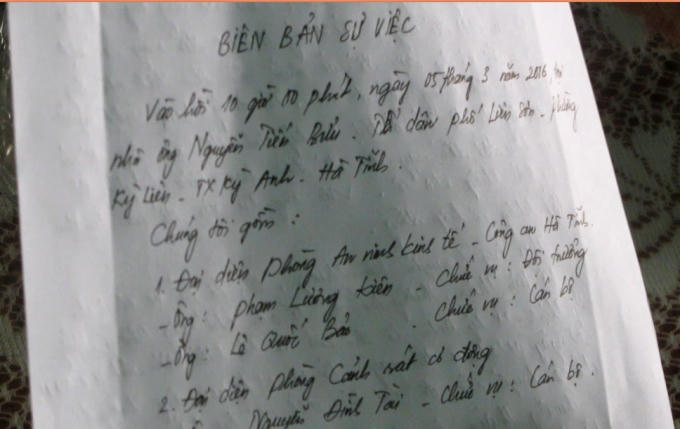 BIÊN BẢN SỰ VIỆC
Vào hồi 10 giờ 00 phút, ngày 05 tháng 3 năm 2016, tại
nhà ông Nguyễn Tiến Bửu. Tổ dân phố Liên Sơn - Phường
Kỳ Liên - TX Kỳ Anh - Hà Tĩnh.
Chúng tôi gồm:
1. Đại diện Phòng An ninh kinh tế - Công an Hà Tĩnh.
- Ông: Phạm Lương Kiên - Chức vụ: Đội trưởng
- Ông: Lê Quốc Bảo - Chức vụ: Cán bộ
2. Đại diện Phòng Cảnh sát cơ động
Nguyễn Đình Tài - Chức vụ: Cán bộ.